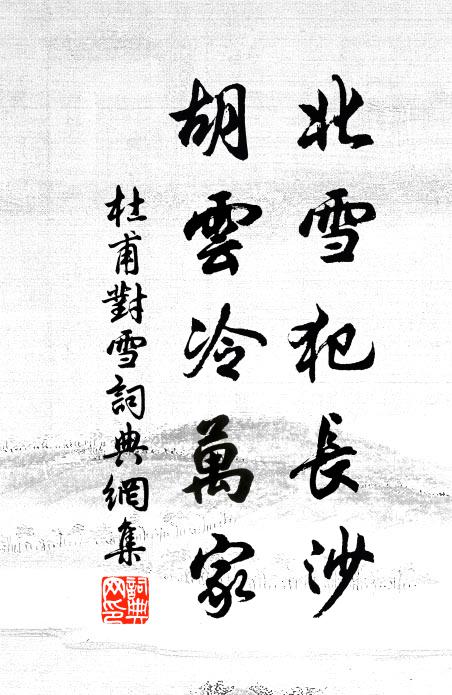 北雪犯長沙
胡雲冷萬家
杜甫對雪詞典網集
詞典网印